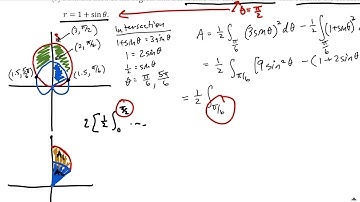 r = 1 + sin θ.
θ = π/2
(3, π/2)
(2, π/6)
(1.5, 5π/6)
(1.5, π/6)
Intersection
1+sinθ = 3sinθ
1 = 2sinθ
1/2 = sinθ
θ = π/6, 5π/6
A = 1/2 ∫ π/6 (3sinθ)² dθ - 1/2 ∫ π/6 (1+sinθ
= 1/2 ∫ π/6 [9sin²θ - (1+2sinθ
= 1/2 ∫ π/6
2[1/2 ∫ 0 π/2 ...